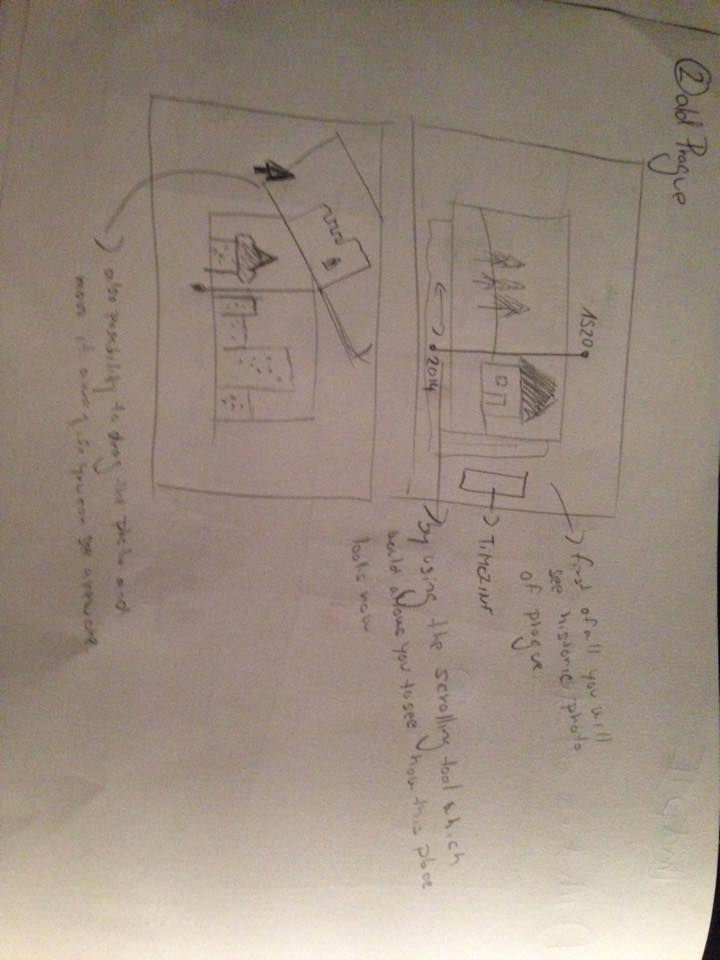 ② old Prague
1520
2014
first of all you will
see historic photo
of prague
by using the scrolling tool which
would allows you to see how this place
looks now
also possibility to drag the photo and
move it away, so you can see